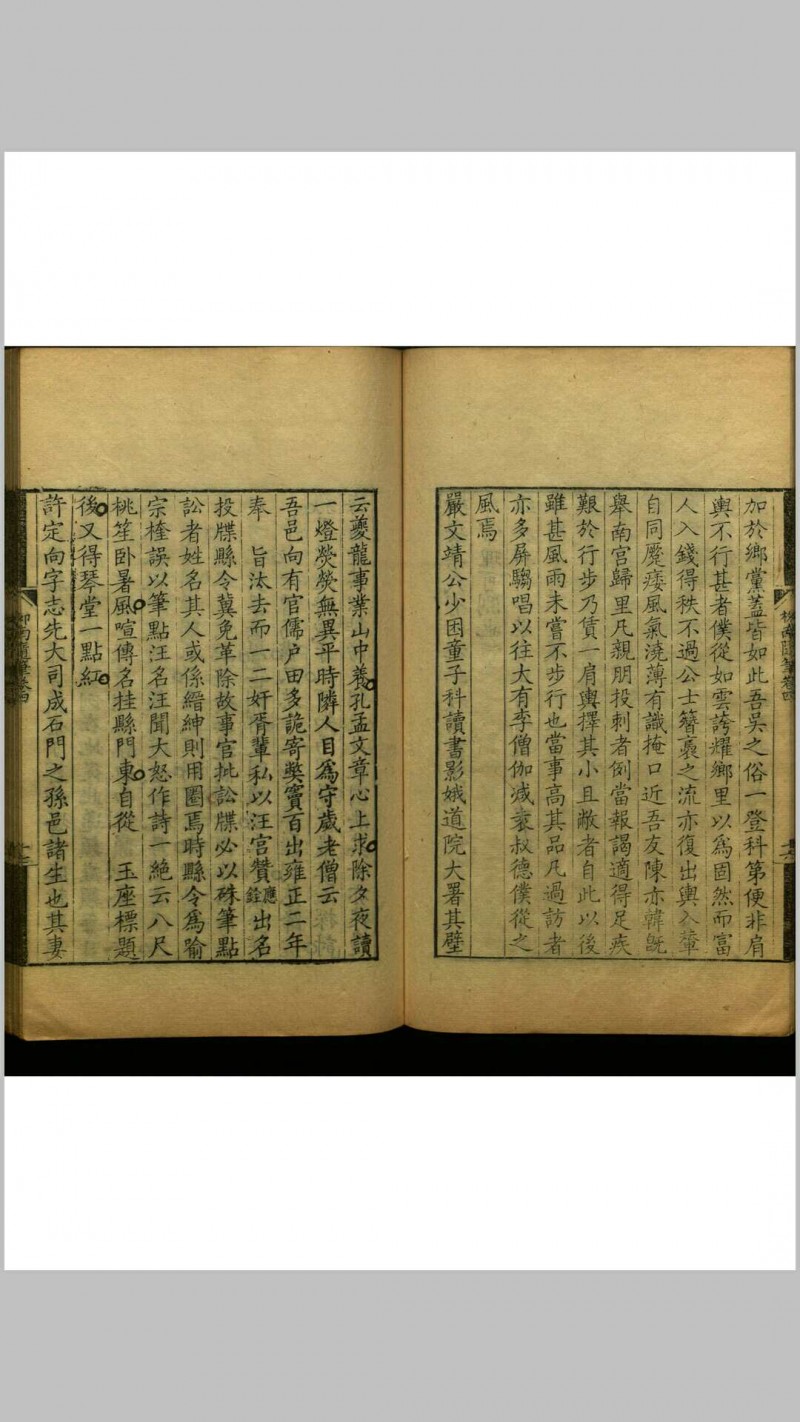 加於鄉黨蓋皆如此吾吳之俗一登科第便非肩
輿不行甚者僕從如雲誇耀鄉里以為固然而富
人入錢得秩不過公士簪裊之流亦復出輿入輦
自同蹷痿風氣澆薄有識掩口近吾友陳亦韓旣
舉南宮歸里凡親朋投刺者例當報謁適得足疾
艱於行步乃賃一肩輿擇其小且敝者自此以後
雖甚風雨未嘗不步行也當事高其品凡過訪者
亦多屏騶唱以往大有李僧伽減衰叔德僕從之
風焉
嚴文靖公少困童子科讀書影娥道院大署其壁
云夔龍事業山中養孔孟文章心上求除夕夜讀
一燈熒熒無異平時隣人目為守歲老僧云
吾邑向有官儒户田多詭寄奬竇百出雍正二年
奉 旨汰去而一二奸胥輩私以汪宮贊應銓出名
投牒縣令冀免革除故事官批訟牒必以硃筆點
訟者姓名其人或係縉紳則用圈焉時縣令為喻
宗桂誤以筆點汪名汪聞大怒作詩一絕云八尺
桃笙卧暑風喧傳名挂縣門東自從 玉座標題
後又得琴堂一點紅
許定向字志先大司成石門之孫邑諸生也其妻